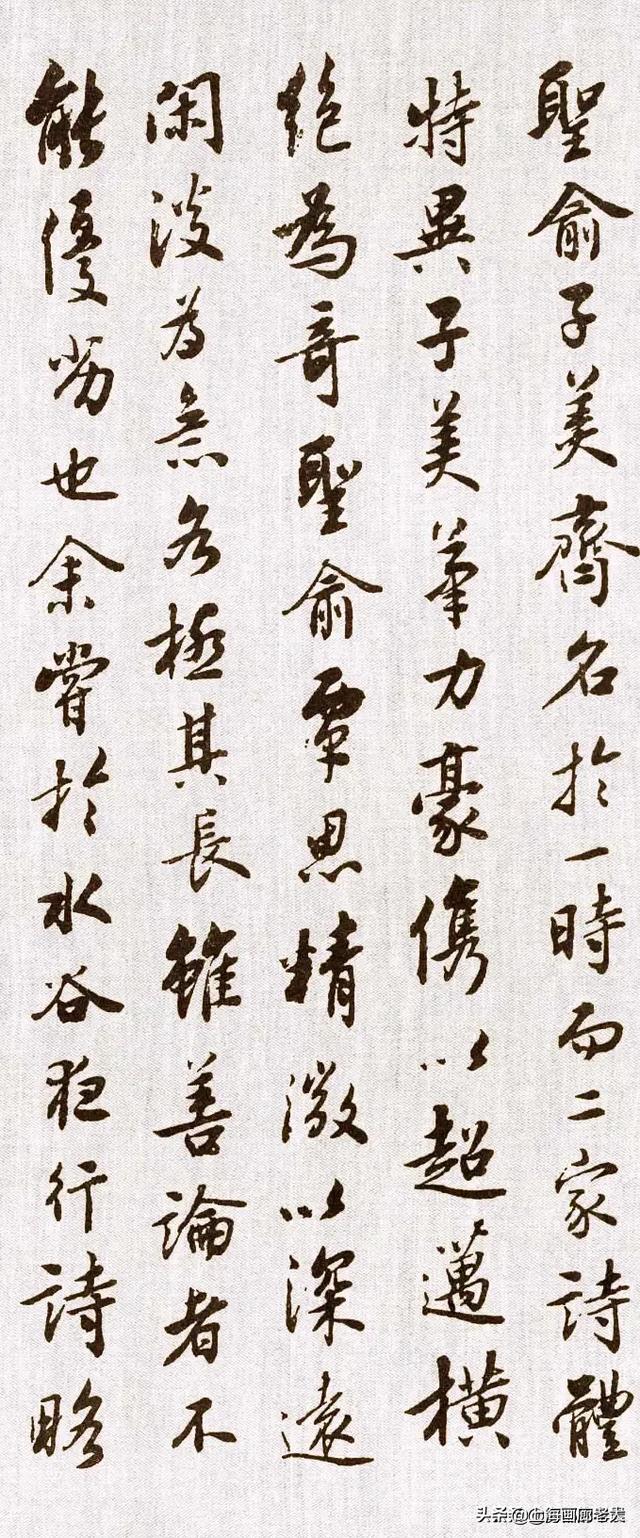 聖俞子美齊名於一時而二家詩體
特異子美筆力豪儁以超邁橫
絕為竒聖俞覃思精微以深遠
閑淡為意各極其長雖善論者不
能優劣也余嘗於水谷夜行詩略
头条 @上海画廊老